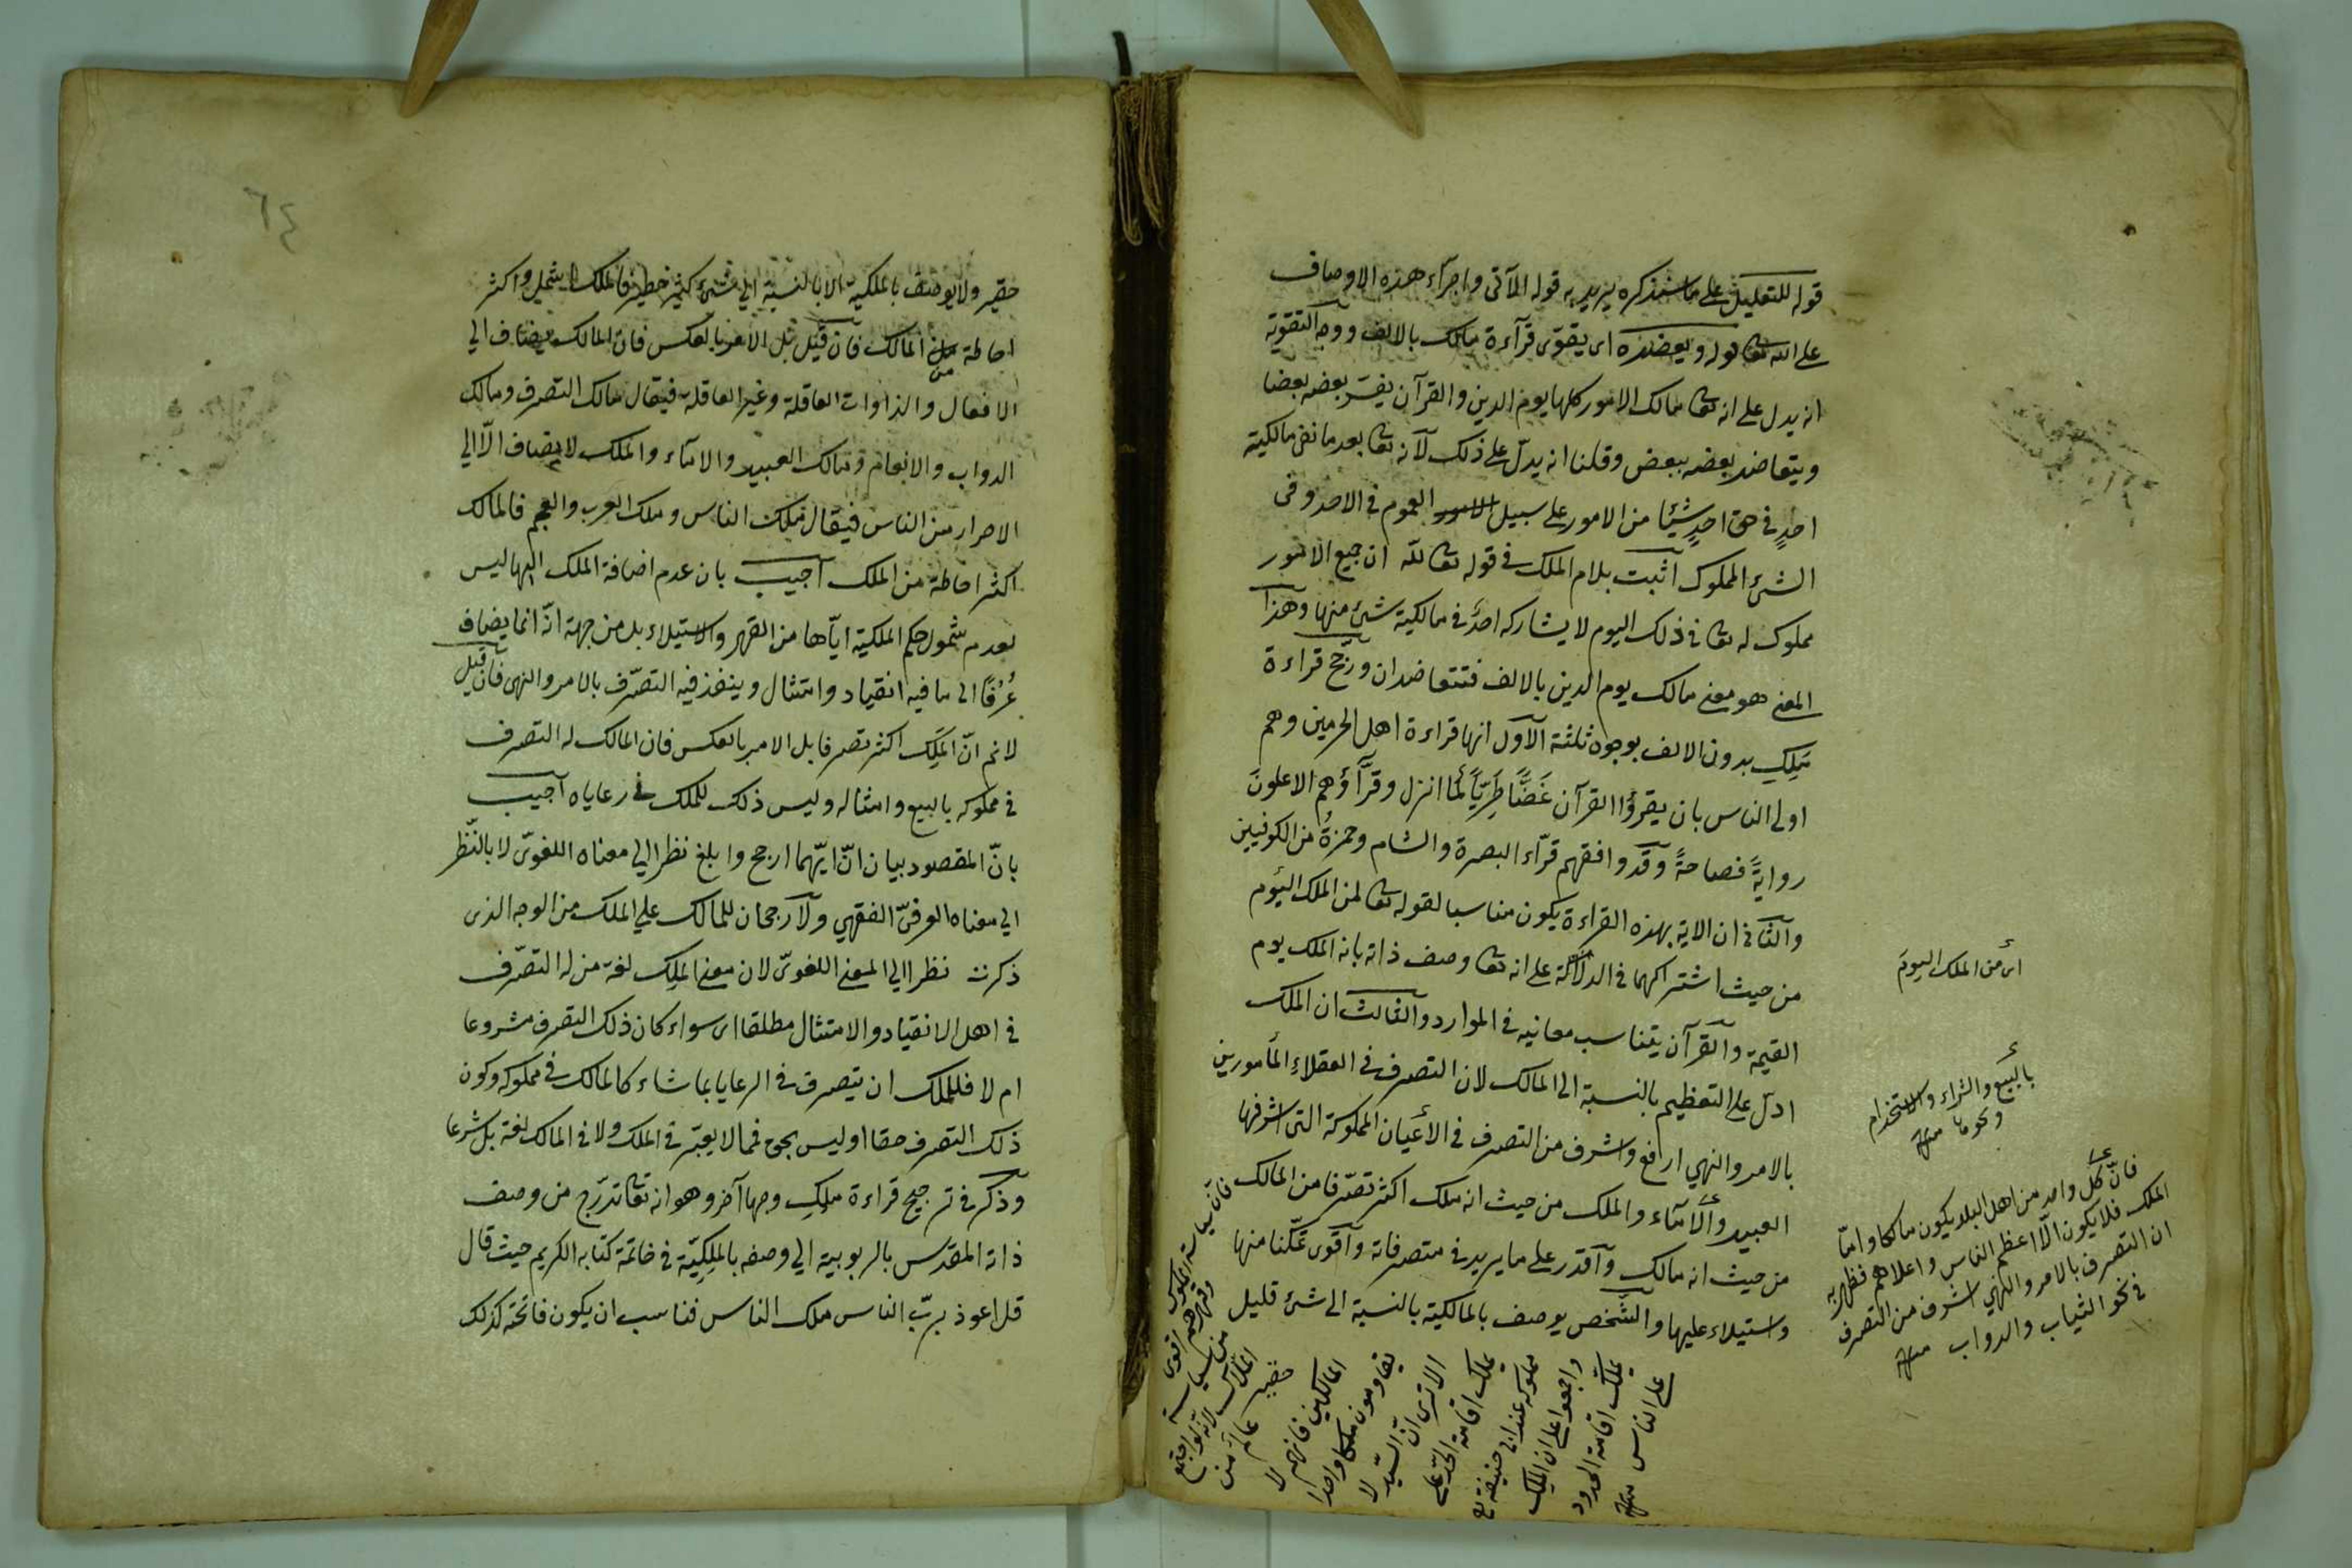 قوله للتعليل على ما سنذكره يريد به قوله الآتى واجرآء هذه الاوصاف
على الله تعا قوله ويعضده اى يقوّى قرآءة مالك بالالف ووجه التقوية
انه يدل على انه تعا مالك الامور كلها يوم الدين والقرآن يفسّر بعضه بعضا
ويتعاضد بعضه ببعض وقلنا انه يدلّ على ذلك لآنه تعا بعد ما نفى مالكية
احدٍ فى حق احدٍ شيئا من الامور على سبيل العموم فى الاحد وفى
الشئ المملوك اثبت بلام الملك فى قوله تعا لله ان جميع الامور
مملوك له تعا فى ذلك اليوم لا يشاركه احدٌ فى مالكية شئ منها وهذا
المعنى هو معنى مالك يوم الدين بالالف فتتعاضدان ورجّح قراءة
مَلِكِ بدون الالف بوجوه ثلثة الآول انها قراءة اهل الحرمين وهم
اولى الناس بان يقرؤا القرآن غَضًّا طَرِيًّا كما انزل وقرّآؤهم الاعلونَ
روايةً فصاحةً وقد وافقهم قرّاء البصرة والشام وحمزةُ من الكوفيين
والثانى ان الاية بهذه القراءة يكون مناسبا لقوله تعا لمن الملك اليَوم
من حيث اشتراكهما فى الدلالة على انه تعا وصف ذاته بانه الملك يوم
القيمة والقرآن يتناسب معانيه فى الموارد والثالث ان الملك
ادلّ على التعظيم بالنسبة الى المالك لان التصرف فى العقلاء المأمورين
بالامر والنهي ارفع واشرف من التصرف فى الأعيان المملوكة التى اشرفها
العبيد والامآء والملك من حيث انه ملك اكثر تصرّفا من المالك
من حيث انه مالك وآقدر على ما يريد فى متصرفاته وآقوى تمكّنا منها
واستيلاء عليها والشخص يوصف بالمالكية بالنسبة الى شئ قليل
اى من الملك اليومَ
بالبيع والشراء والاستخدام
ونحوها منه
فانّ كل واحد من اهل البلد يكون مالكا وامّا
الملك فلا يكون الّا اعظم الناس واعلاهم فظهر به
ان التصرف بالامر والنهي اشرف من التصرف
فى نحو الثياب والدواب منه
فان سياسة الملوك
وقهرهم اقوى
من سياسة
الملّاك لانه لو اجتمع
عالم من
المالكين فانهم لا
يقاومون ملكا واحدا
الا ترى انّ السّيد لا
يملك اقامة الحدّ على
مملوكه عند ابى حنيفة
واجمعوا على ان الملك
يملك اقامة الحدود
على الناس منه
٦٤
حقير ولا يوصف بالملكية الا بالنسبة الى شئ كثير خطير فالملك اشمل واكثر
احاطة من المالك فان قيل بل الامر بالعكس فان المالك يضاف الي
الافعال والذاوات العاقلة وغير العاقلة فيقال مالك التصرف ومالك
الدواب والانعام ومالك العبيد والامآء والملك لا يضاف الّا الي
الاحرار من الناس فيقال ملك الناس وملك العرب والعجم فالمالك
اكثر احاطة من الملك اجيب بان عدم اضافة الملك اليها ليس
لعدم شمول حكم الملكية ايّاها من القهر والاستيلاء بل من جهة انّه انما يضاف
عُرْفًا الى ما فيه انقياد وامتثال وينفذ فيه التصّرف بالامر والنهى فان قيل
لانم انّ الملِك اكثر تصرفا بل الامر بالعكس فان المالك له التصرف
فى مملوكه بالبيع وامثاله وليس ذلك للملك فى رعاياه اجيب
بانّ المقصود بيان انّ ايّهما ارجح وابلغ نظرا الي معناه اللغوىّ لا بالنّظر
الي معناه العرفىّ الفقهي ولا رجحان للمالك علي الملك من الوجه الذى
ذكرت نظرا الي المعنى اللغوىّ لان معنى الملِك لغة من له التصرّف
فى اهل الانقياد والامتثال مطلقا اى سواء كان ذلك التصرف مشروعا
ام لا فللملك ان يتصرف فى الرعايا بما شاء كالمالك فى مملوكه وكون
ذلك التصرف حقا او ليس بحق فمما لا يعتبر فى الملك ولا فى المالك لغة بل شرعا
وذكر فى ترجيح قراءة ملِكِ وجها آخر وهو انه تعا تدرّج من وصف
ذاته المقدس بالربوبية الي وصفه بالملِكِيّة فى خاتمة كتابه الكريم حيث قال
قل اعوذ بربّ الناس ملك الناس فناسب ان يكون فاتحته كذلك